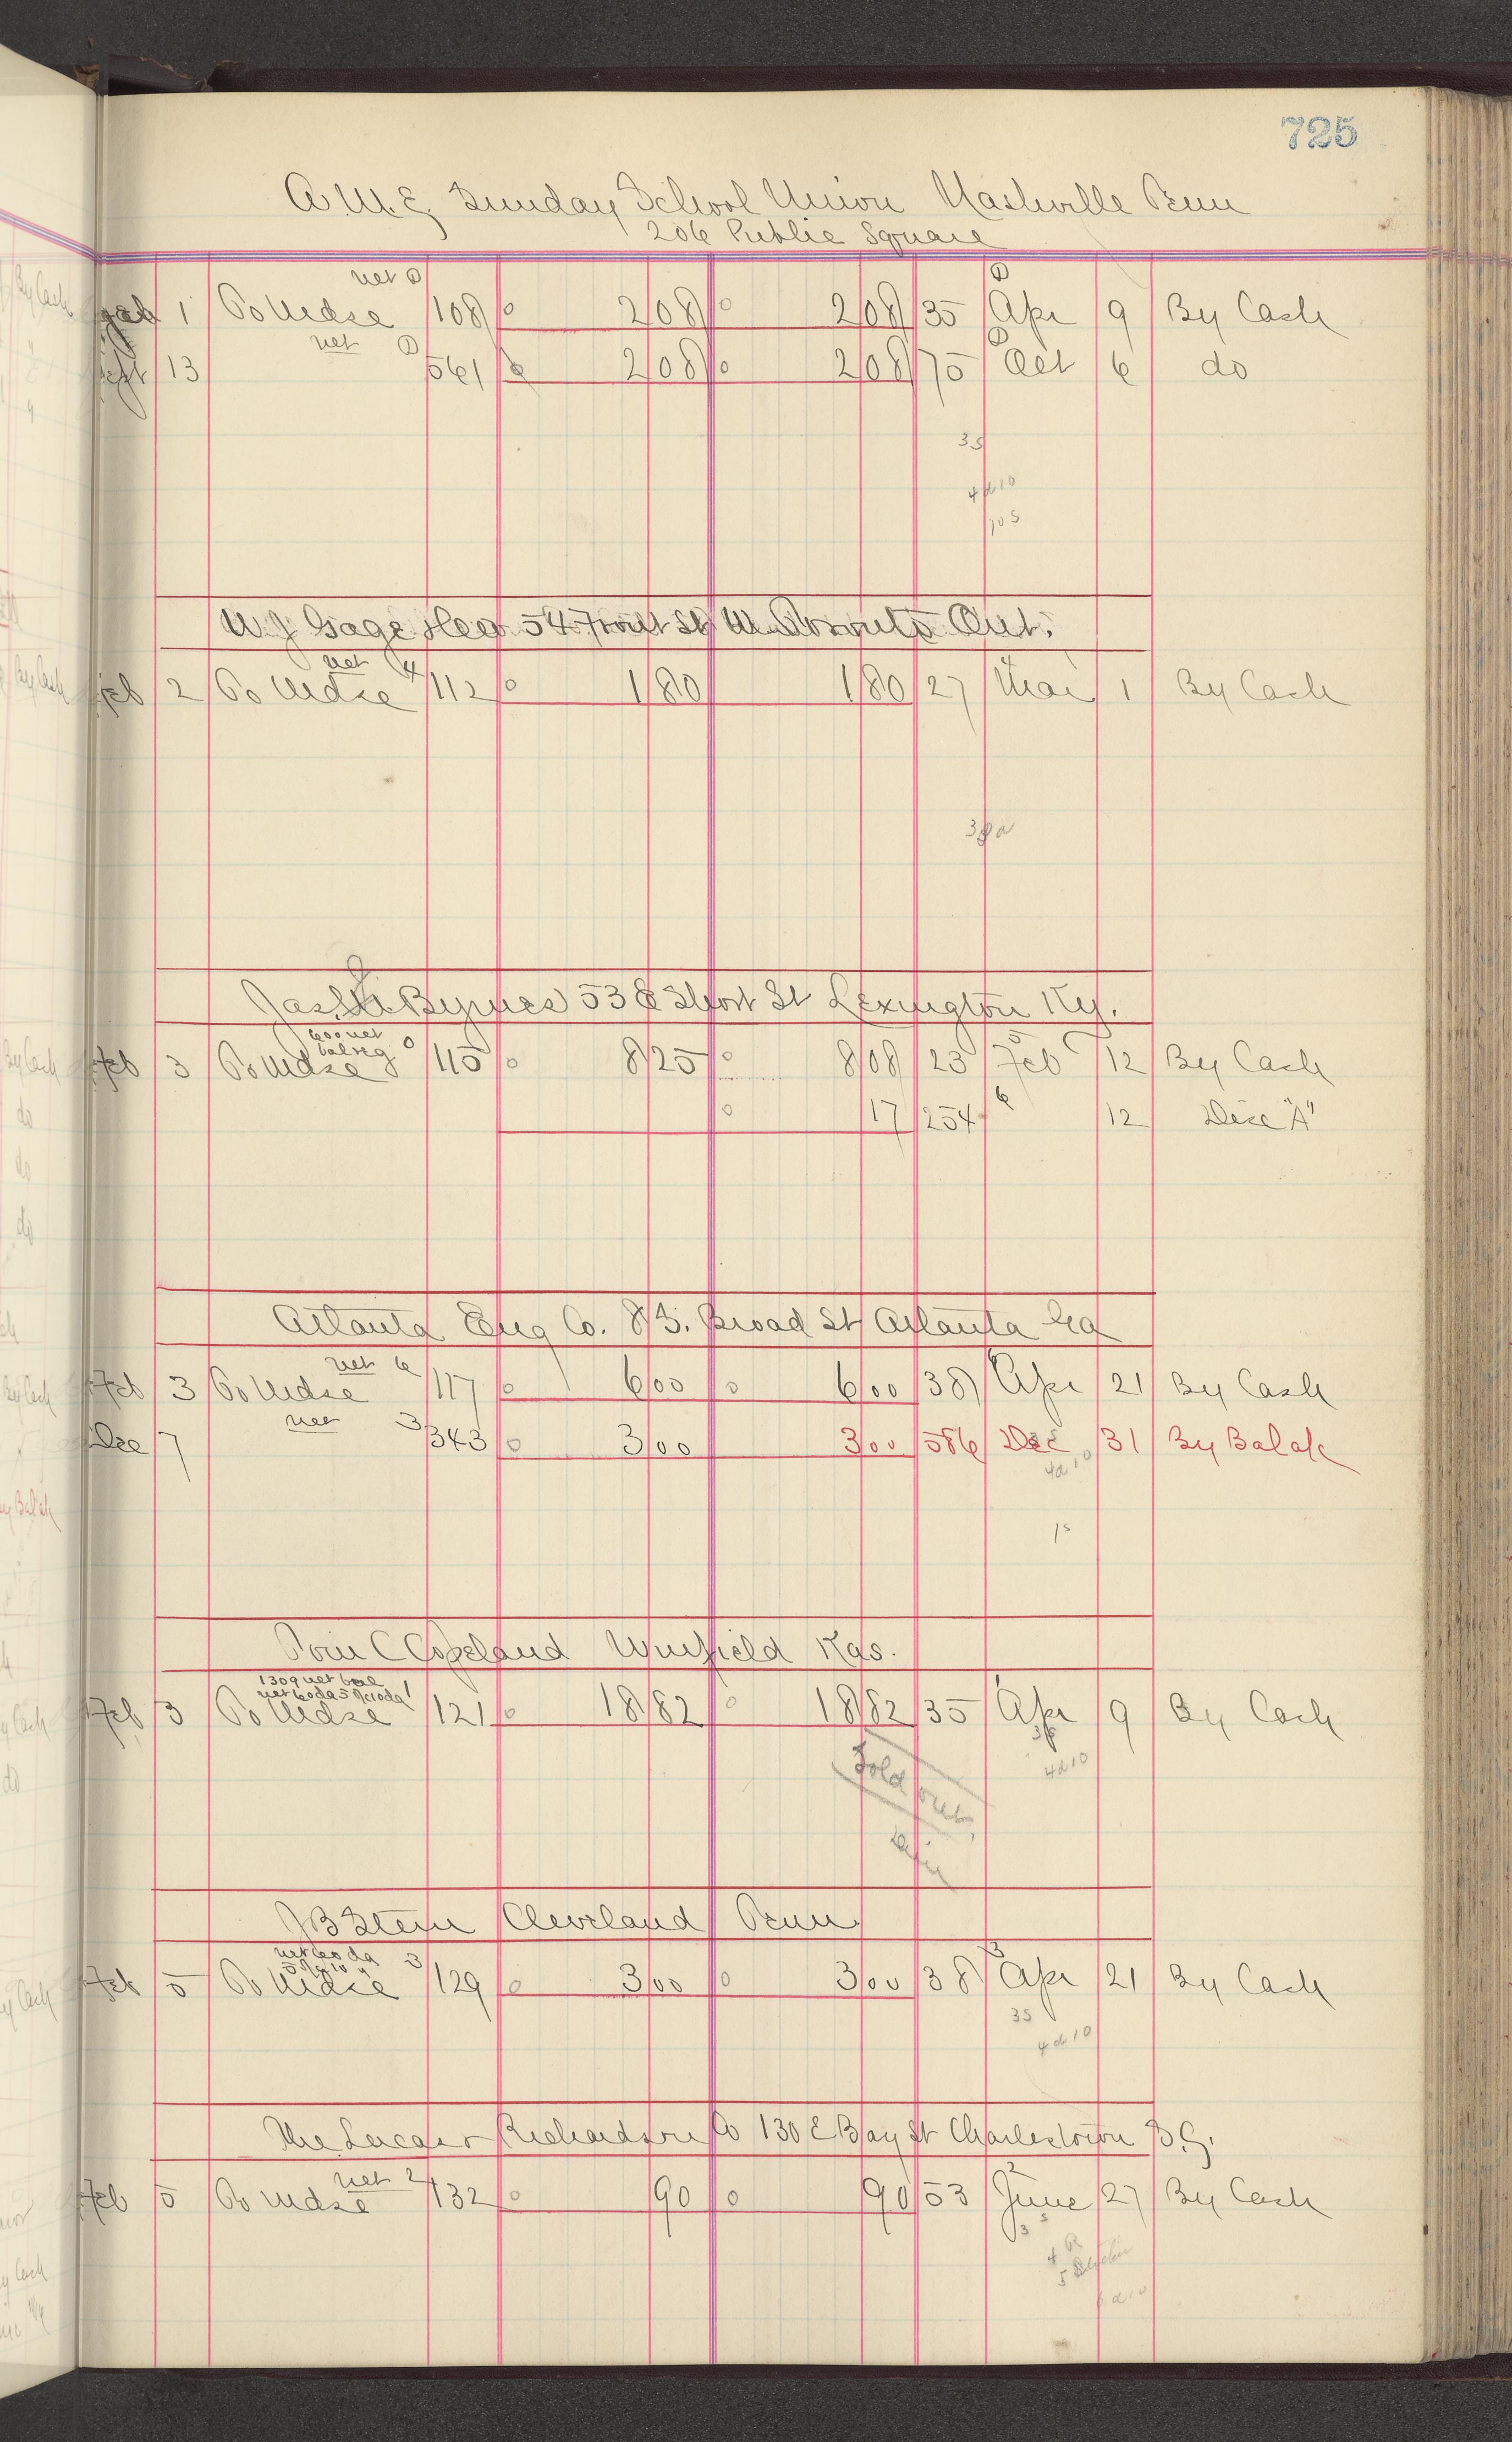 725
A.M.E. Sunday School Union Nashville Tenn
206 Public Square
net 1 1
Feb 1 To Mdse 108 0 2 08 0 2 08 35 Apr 9 By Cash
net 1 1
Sept 13 561 0 2 08 0 2 08 75 Oct 6 do
3s
4 d 10
10 s
W J Gage & Co 54 Front St W. Toronto Ont.
net 4
Feb 2 To Mdse 112 0 1 80 1 80 27 Mar 1 By Cash
3
Jas. Byrnes 53 E Short St Lexington Ky.
600 net
bal reg 0 5
Feb 3 To Mdse 115 0 8 25 0 8 08 23 Feb 12 By Cash
0 17 254 6 12 Disc "A"
Atlanta Eng Co. 8 S. Broad St Atlanta Ga
net 6 6
Feb 3 To Mdse 117 0 6 00 0 6 00 38 Apr 21 By Cash
net 3
Dec 7 343 0 3 00 3 00 586 Dec 31 By Balak
4d10
1s
Tom C Copeland Winfield Kas.
1309 net bal
net 60 da 5 % 10 da 1 1
Feb 3 To Mdse 121 0 18 82 0 18 82 35 Apr 9 By Cash
3s
4d10
Sold out
J B Stein Cleveland Tenn
net 60 da 3 3
5 % 10 "
Feb 5 To Mdse 129 0 3 00 0 3 00 38 Apr 21 By Cash
3s
4 d 10
The Lucas & Richardson Co 130 E Bay St Charlestown S.C.
net 2 2
Feb 5 To Mdse 132 0 90 0 90 53 June 27 By Cash
3 s
4
5
6 d 10